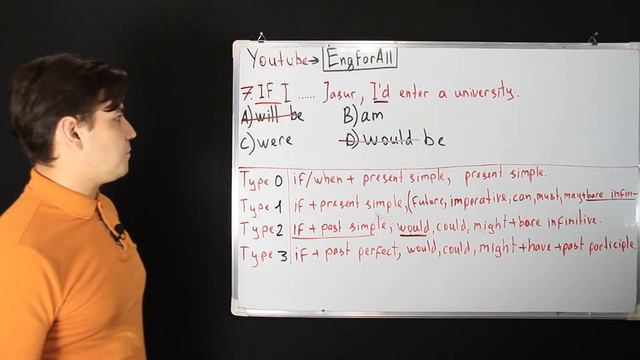 Youtube → EngForAll
7. IF I ...... Jasur, I'd enter a university.
A) will be B) am
C) were D) would be
Type 0 if/when + present simple, present simple.
Type 1 if + present simple, (future, imperative, can, must, may + bare infin-
Type 2 If + past simple, would, could, might + bare infinitive.
Type 3 if + past perfect, would, could, might + have + past participle.